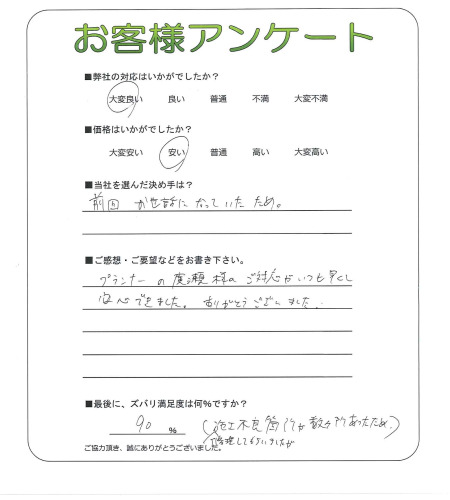 お客様アンケート
■弊社の対応はいかがでしたか？
大変良い 良い 普通 不満 大変不満
■価格はいかがでしたか？
大変安い 安い 普通 高い 大変高い
■当社を選んだ決め手は？
前回 お世話になっていたため。
■ご感想・ご要望などをお書き下さい。
プランナーの廣瀬様のご対応がいつも早くし
安心できました。ありがとうございました。
■最後に、ズバリ満足度は何％ですか？
90 ％ (施工不良箇所が数ヶ所あったため。)
修理してもらいましたが
ご協力頂き、誠にありがとうございました。